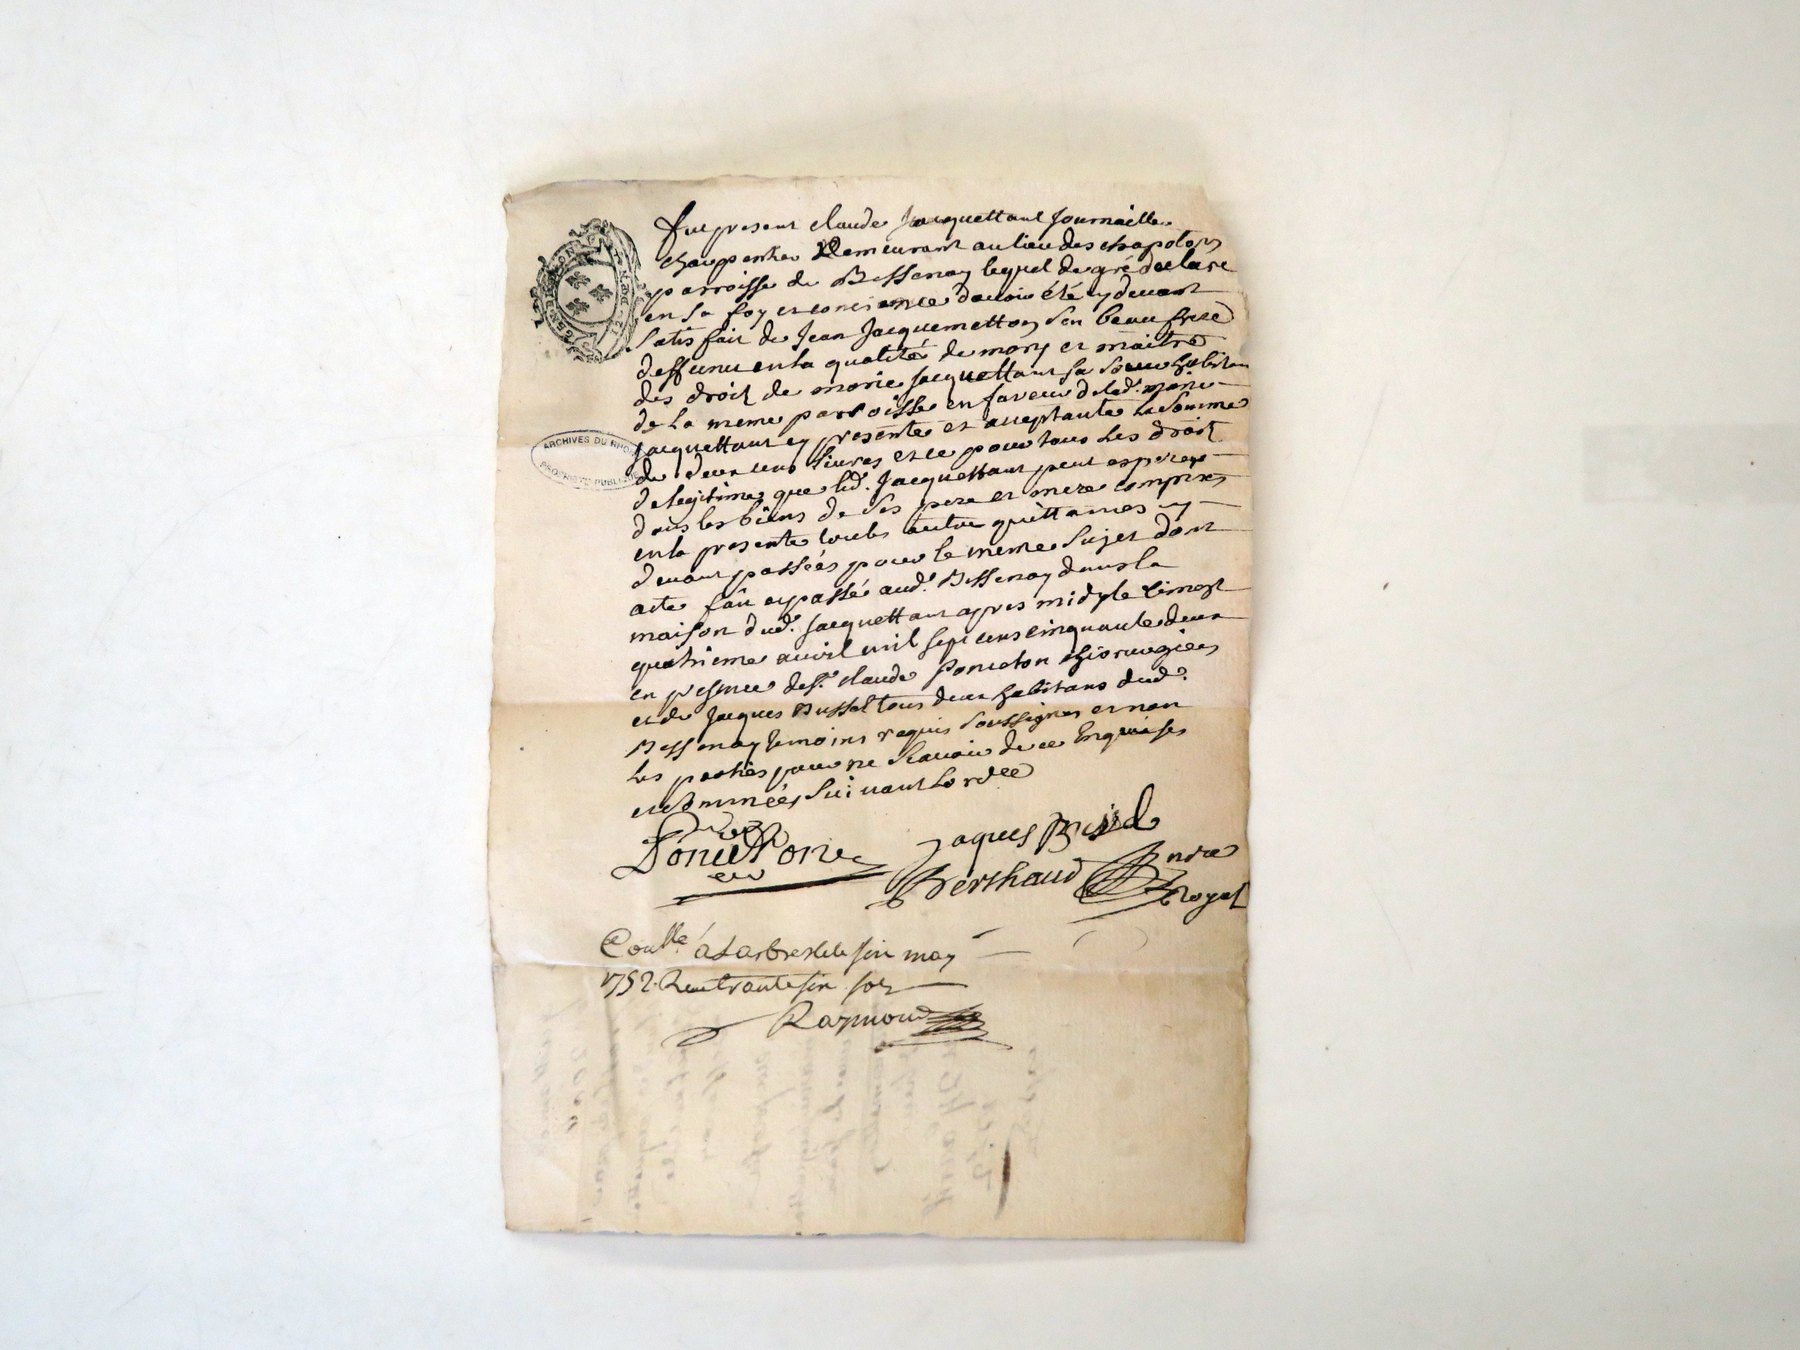 fut present claude Jacquettant Journallie
charpentier Demeurant au lieu des chapotons
parroisse de Bessenay lequel de gré declare
en sa foy et concience davoir été cy devant
satisfait de Jean Jacquemetton son beau frere
deffunt en la qualité de mary et maitre
des droit de marie Jacquettant sa soeur habitan
de la meme parroisse en faveur de lad. marie
Jacquettant cy presente et acceptante la somme
de deux cens livres et ce pour tous les droit
de legitime que led. Jacquettant peut esperer
dans les biens de ses pere et mere comprises
en la presente toutes autre quittances cy
devant passées pour le meme sujet dont
acte fait et passé aud. Bessenay dans la
maison dud. Jacquettant apres midy le vingt
quatrieme avril mil sept cens cinquante deux
en presence de sr. claude Ponceton chirurgien
et de Jacques Bussel tous deux habitans dud.
Bessenay temoins requis soussignes et non
les parties pour ne scavoir de ce Enquises
et sommées suivant lordce
Ponceton
Jaques
Berthaud Nore Royal
Conllé. a Larbresle le six may
1752. Recu trante six sols
Raymond
ARCHIVES DU RHONE
PROPRIETE PUBLIQUE
GENE LYON